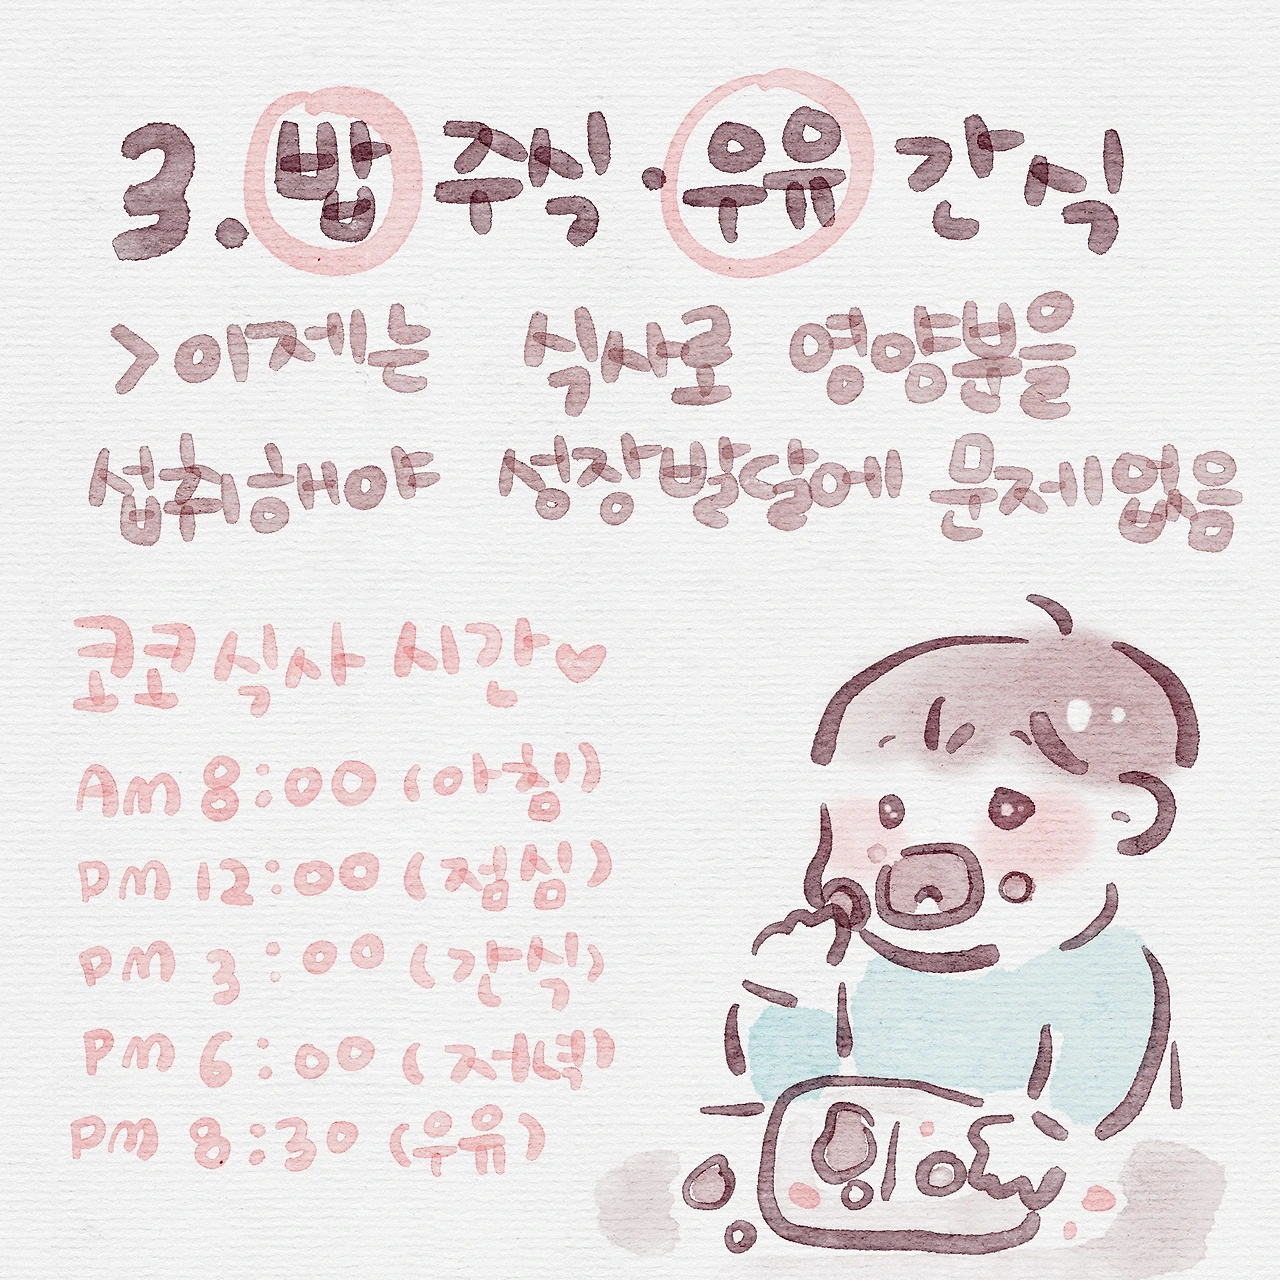 3. 밥 주식·우유 간식
>이제는 식사로 영양분을
섭취해야 성장발달에 문제없음
코코식사 시간♥
Am 8:00 (아침)
pm 12:00 (점심)
pm 3:00 (간식)
pm 6:00 (저녁)
pm 8:30 (우유)